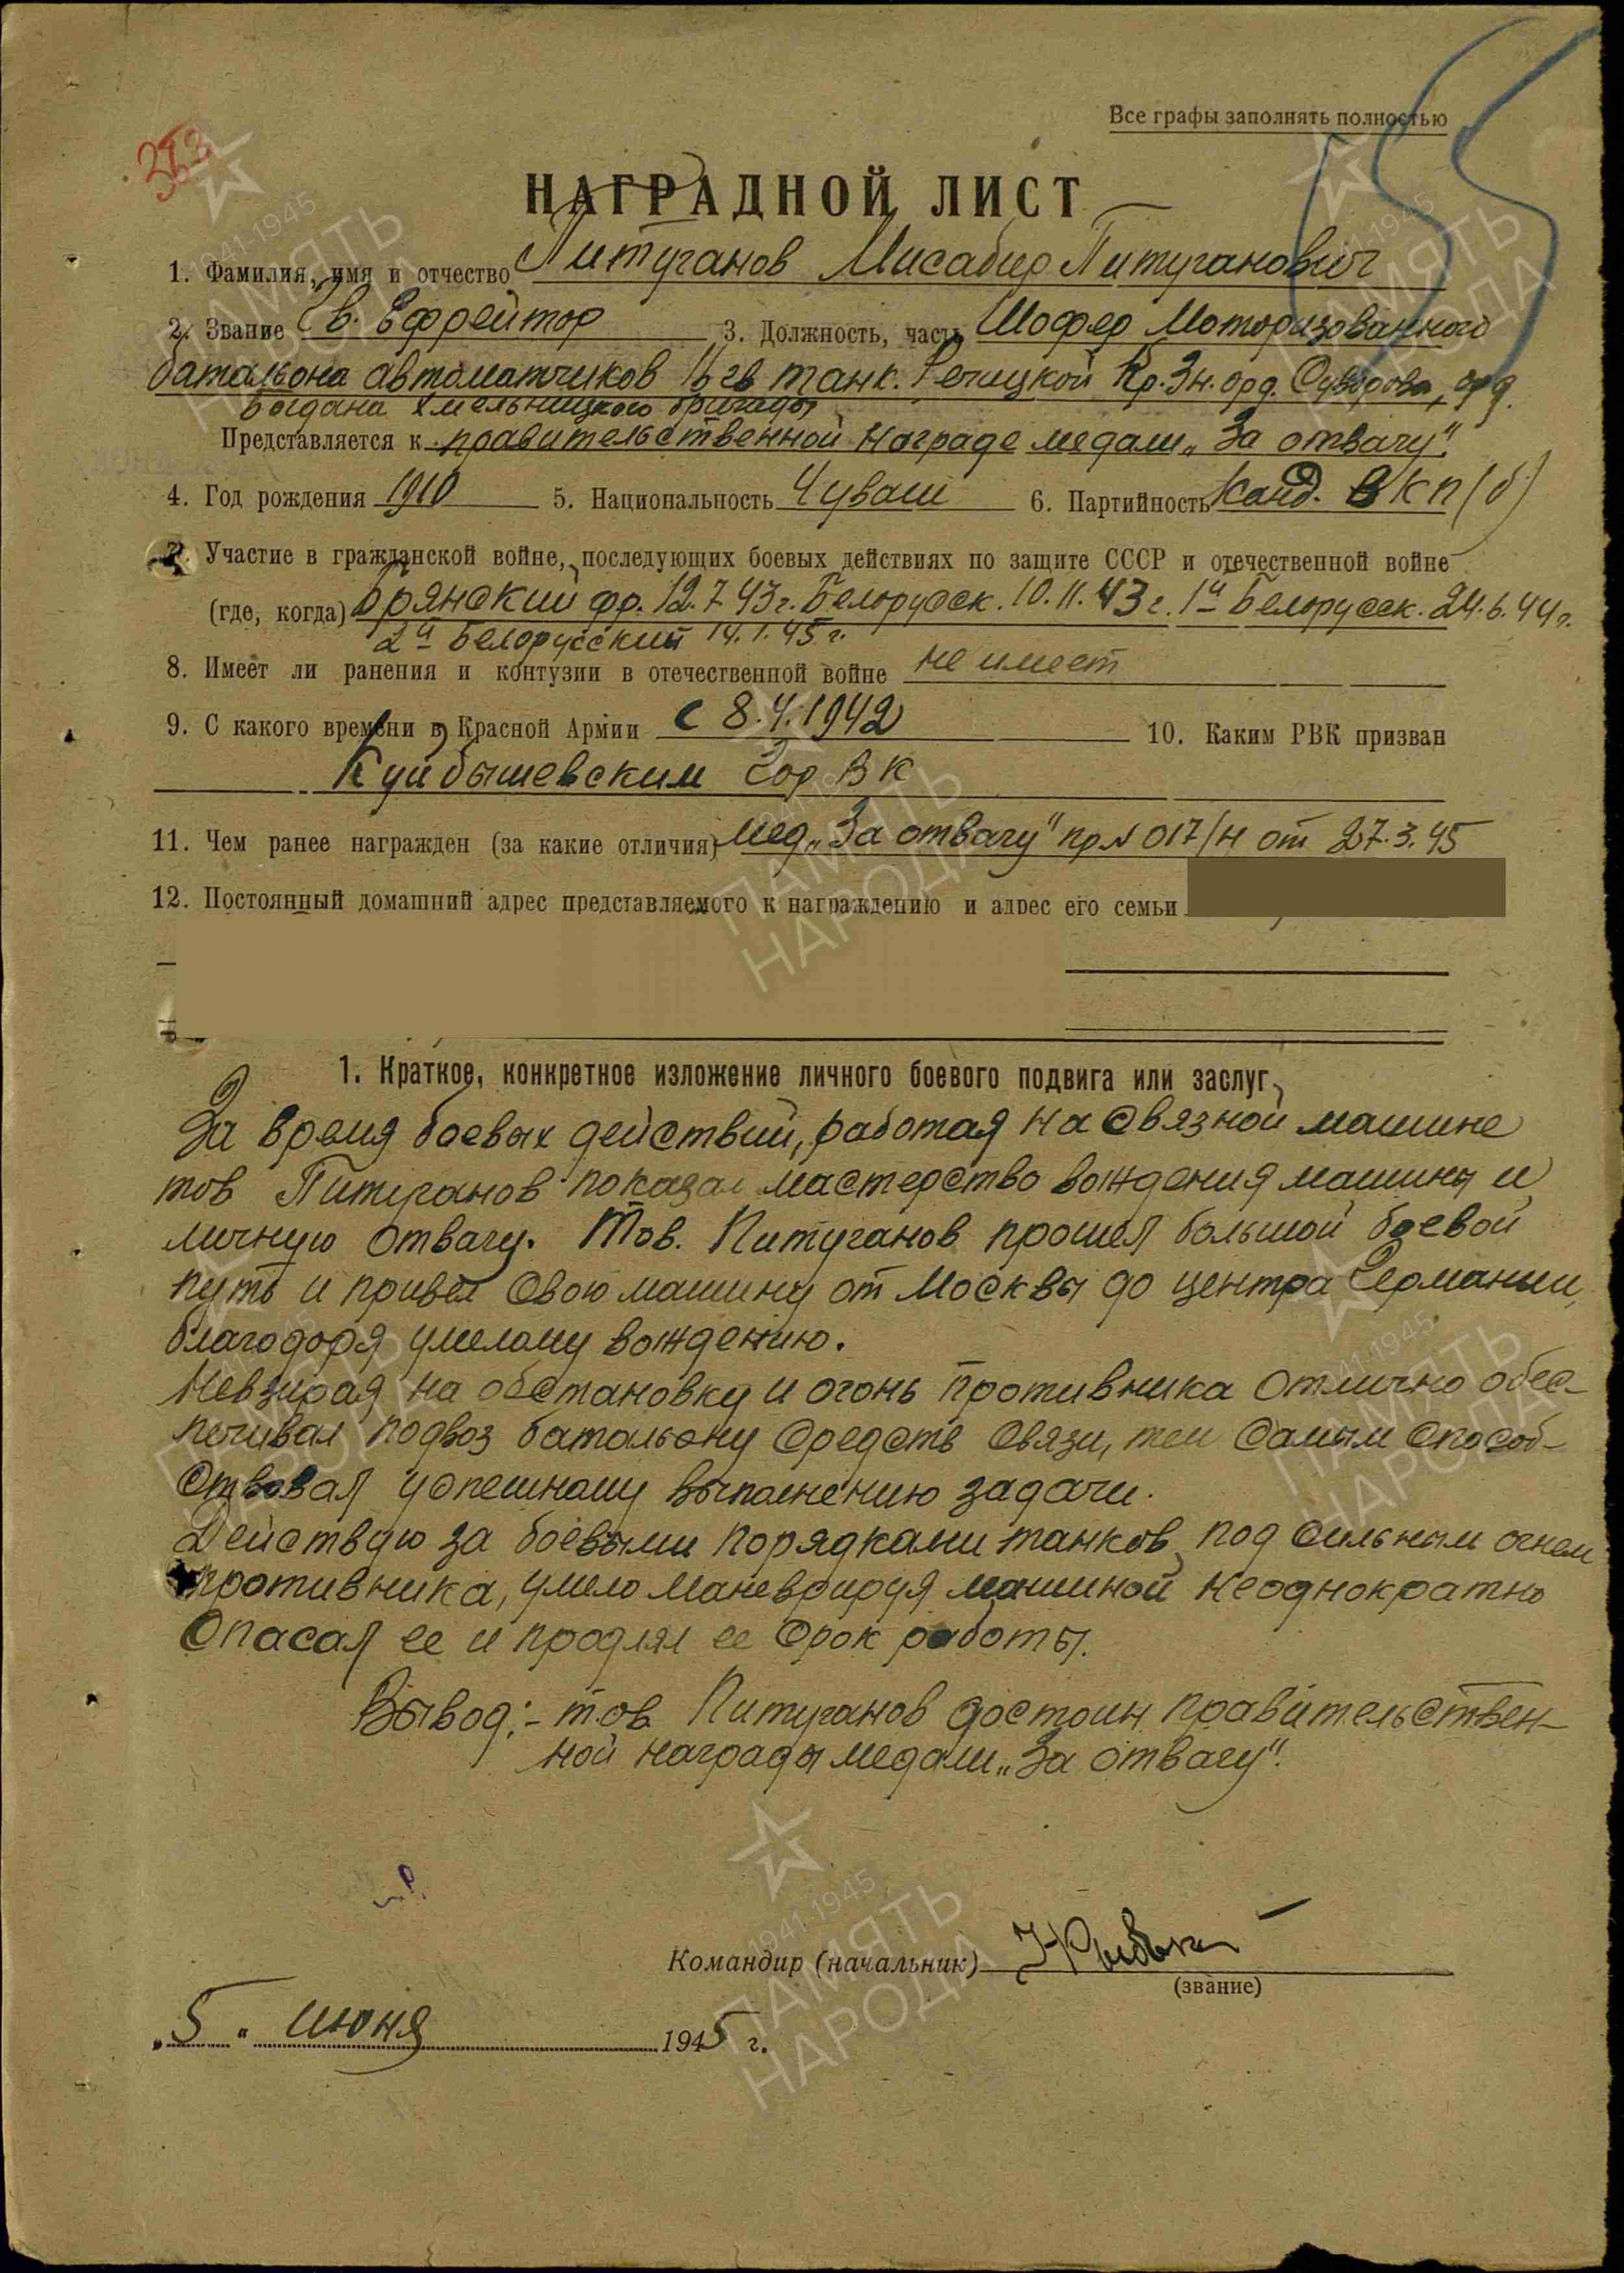 Все графы заполнять полностью
263
НАГРАДНОЙ ЛИСТ
1. Фамилия, имя и отчество Питуганов Мисабир Питуганович
2. Звание Гв. Ефрейтор 3. Должность, часть Шофер Моторизованного
батальона автоматчиков 16 гв танк. Речицкой Кр. Зн. орд. Суворова, орд.
Богдана Хмельницкого бригады
Представляется к правительственной награде медали „За отвагу".
4. Год рождения 1910 5. Национальность Чуваш 6. Партийность Канд. ВКП(б)
7. Участие в гражданской войне, последующих боевых действиях по защите СССР и отечественной войне
(где, когда) Брянский фр. 12.7.43г. Белорусск. 10.11.43г. 1й Белорусск. 24.6.44г.
2й Белорусский 14.1.45г.
8. Имеет ли ранения и контузии в отечественной войне не имеет
9. С какого времени в Красной Армии с 8.4.1942 10. Каким РВК призван
Куйбышевским Гор ВК
11. Чем ранее награжден (за какие отличия) мед. „За отвагу" пр N 017/н от 27.3.45
12. Постоянный домашний адрес представляемого к награждению и адрес его семьи
1. Краткое, конкретное изложение личного боевого подвига или заслуг
За время боевых действий, работая на связной машине
тов Питуганов показал мастерство вождения машины и
личную отвагу. Тов. Питуганов прошел большой боевой
путь и привел свою машину от Москвы до центра Германии,
благодоря умелому вождению.
Невзирая на обстановку и огонь противника отлично обес-
печивал подвоз батальону средств связи, тем самым способ-
ствовал успешному выполнению задачи.
Действую за боевыми порядками танков, под сильным огнем
противника, умело маневрируя машиной неоднократно
спасал ее и продлял ее срок работы.
Вывод:- тов. Питуганов достоин правительствен-
ной награды медали „За отвагу".
Командир (начальник)
(звание)
„5" июня 1945 г.
1941-1945
ПАМЯТЬ
НАРОДА